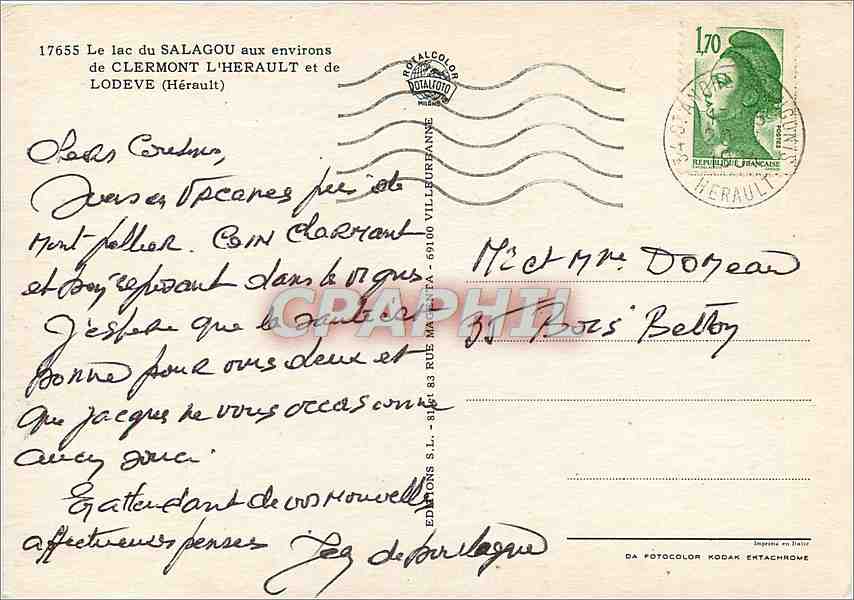 17655 Le lac du SALAGOU aux environs
de CLERMONT L'HERAULT et de
LODEVE (Hérault)
ROTALCOLOR
ROTALFOTO
MILANO
1,70
POSTES
REPUBLIQUE FRANÇAISE
34 ST ANDRE SANGONIS
HERAULT
Chers Cousins,
en Vacances près de
Montpellier. Coin Charmant
et bien reposant dans les vignes
J'espère que la santé est
bonne pour vous deux et
que Jacques ne vous occasionne
aucun souci.
En attendant de vos nouvelles
affectueuses pensées
CPAPHIL
EDITIONS S.L. - 81 et 83 RUE MAGENTA - 69100 VILLEURBANNE
Mr et Mme
35 Bois Betton
Imprimé en Italie
DA FOTOCOLOR KODAK EKTACHROME